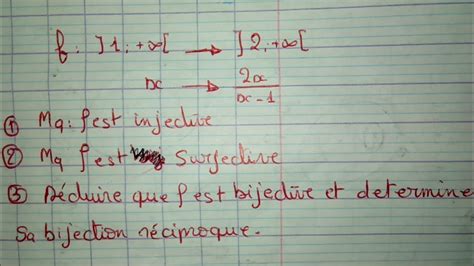 f : ]1 ; +∞[ → ]2 ; +∞[
x → 2x / x-1
① Mq : f est injective
② Mq f est surjective
③ Déduire que f est bijective et determine
sa bijection réciproque.